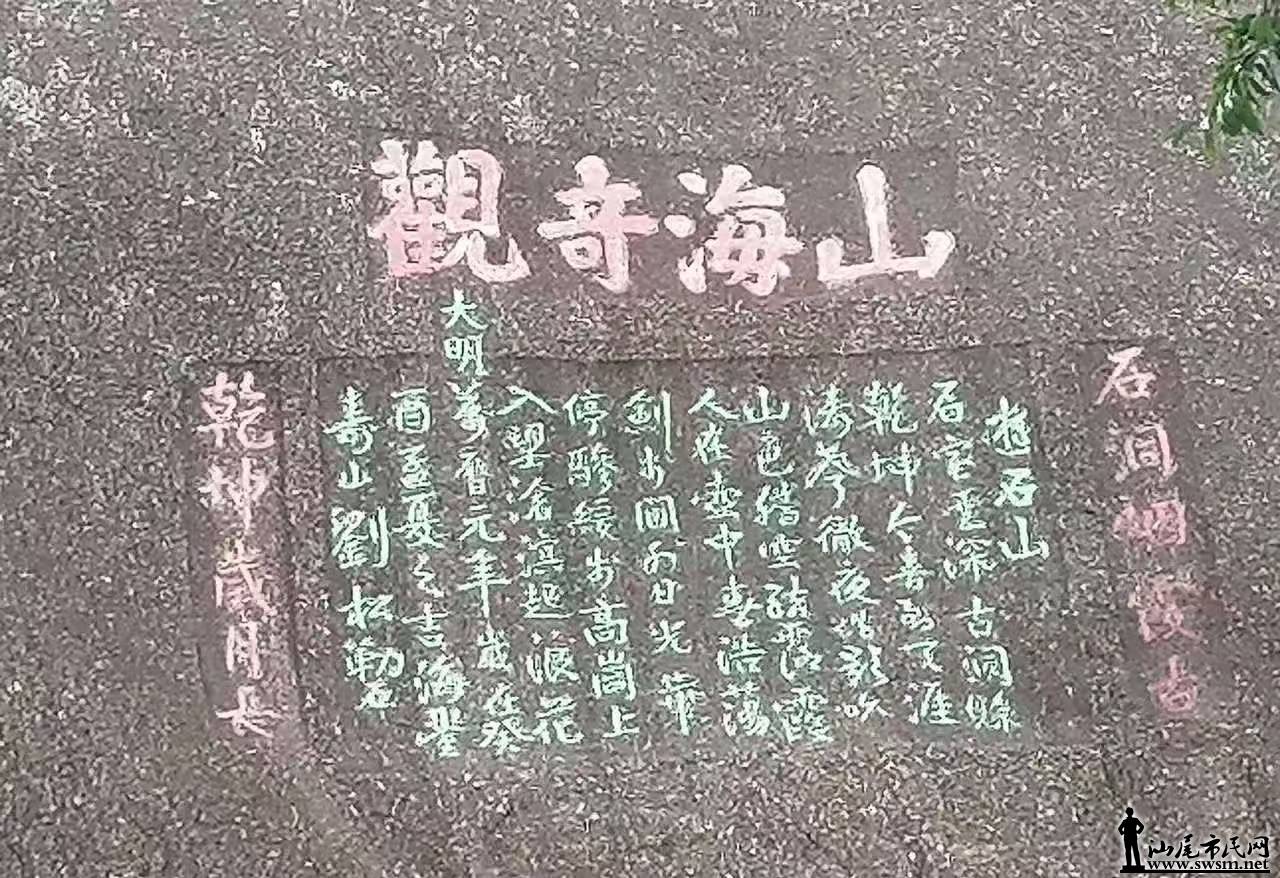 山海奇觀
石洞烟霞古
遊石山
石室雲深古洞賒
乾坤今喜到天涯
濤 徹夜 吹
山色 空 落霞
人在壺中春浩蕩
劍 日光華
停驂緩步高崗上
入望滄溟起浪花
大明萬曆元年歲癸
酉孟夏之吉海豐
壽山劉松勒石
乾坤歲月長
汕尾市民网
www.swsm.net